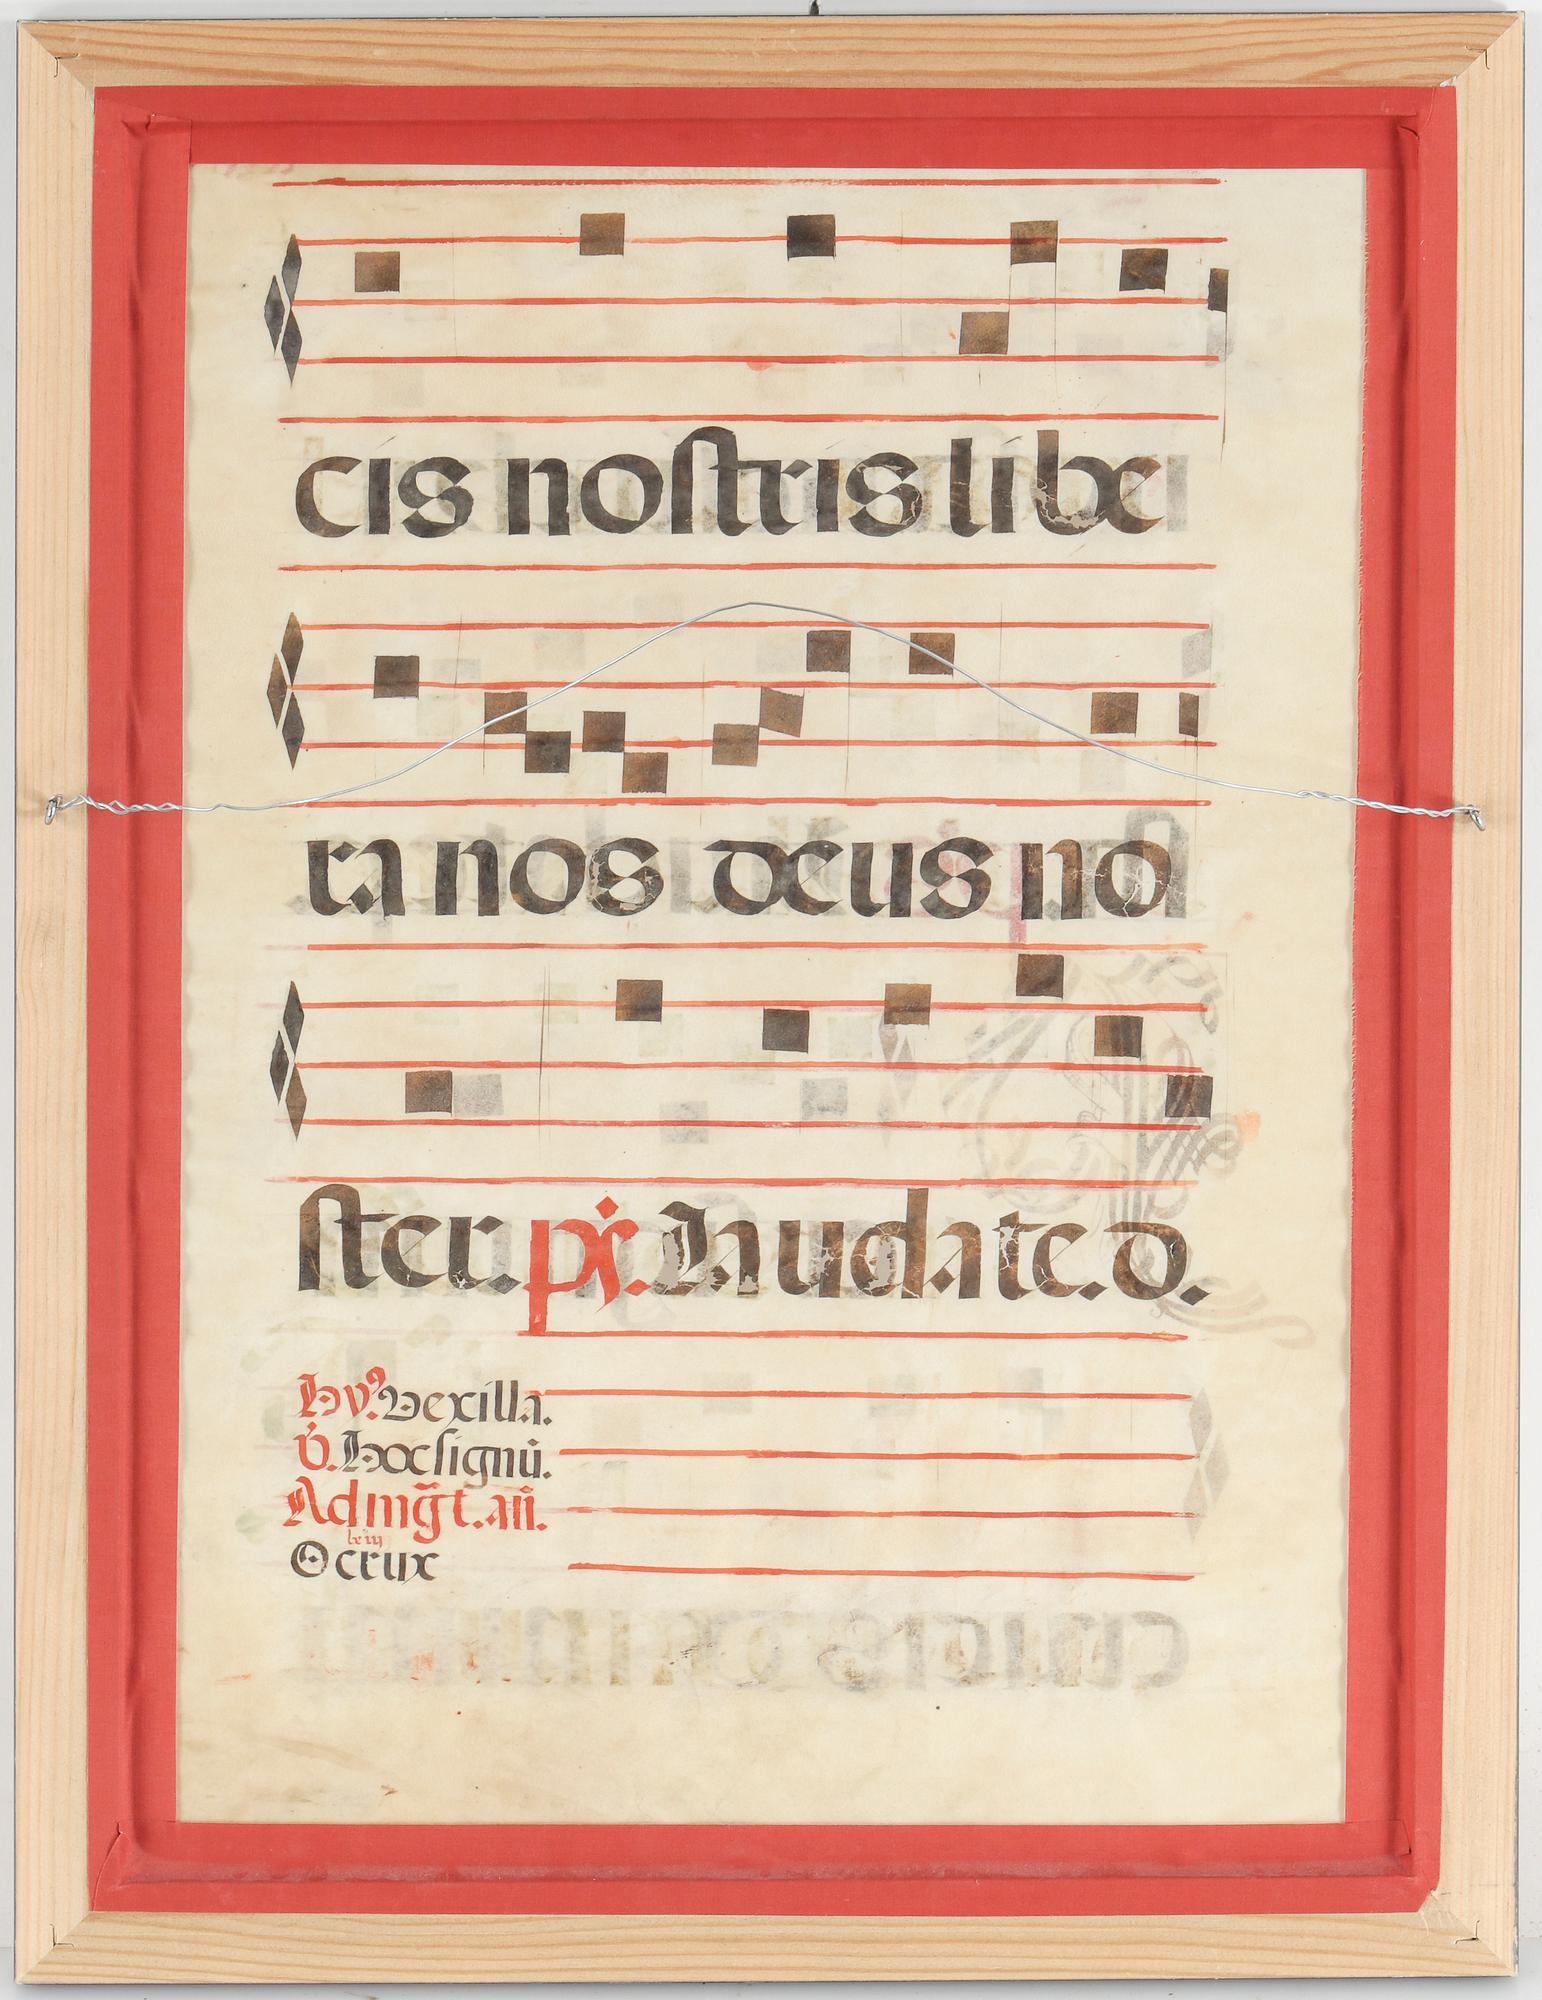 cis nostris libe
ra nos deus no
ster. ps. Laudate. d.
hy9. Vexilla.
v. Hoc signū.
Ad mg̃t. añ.
O crux